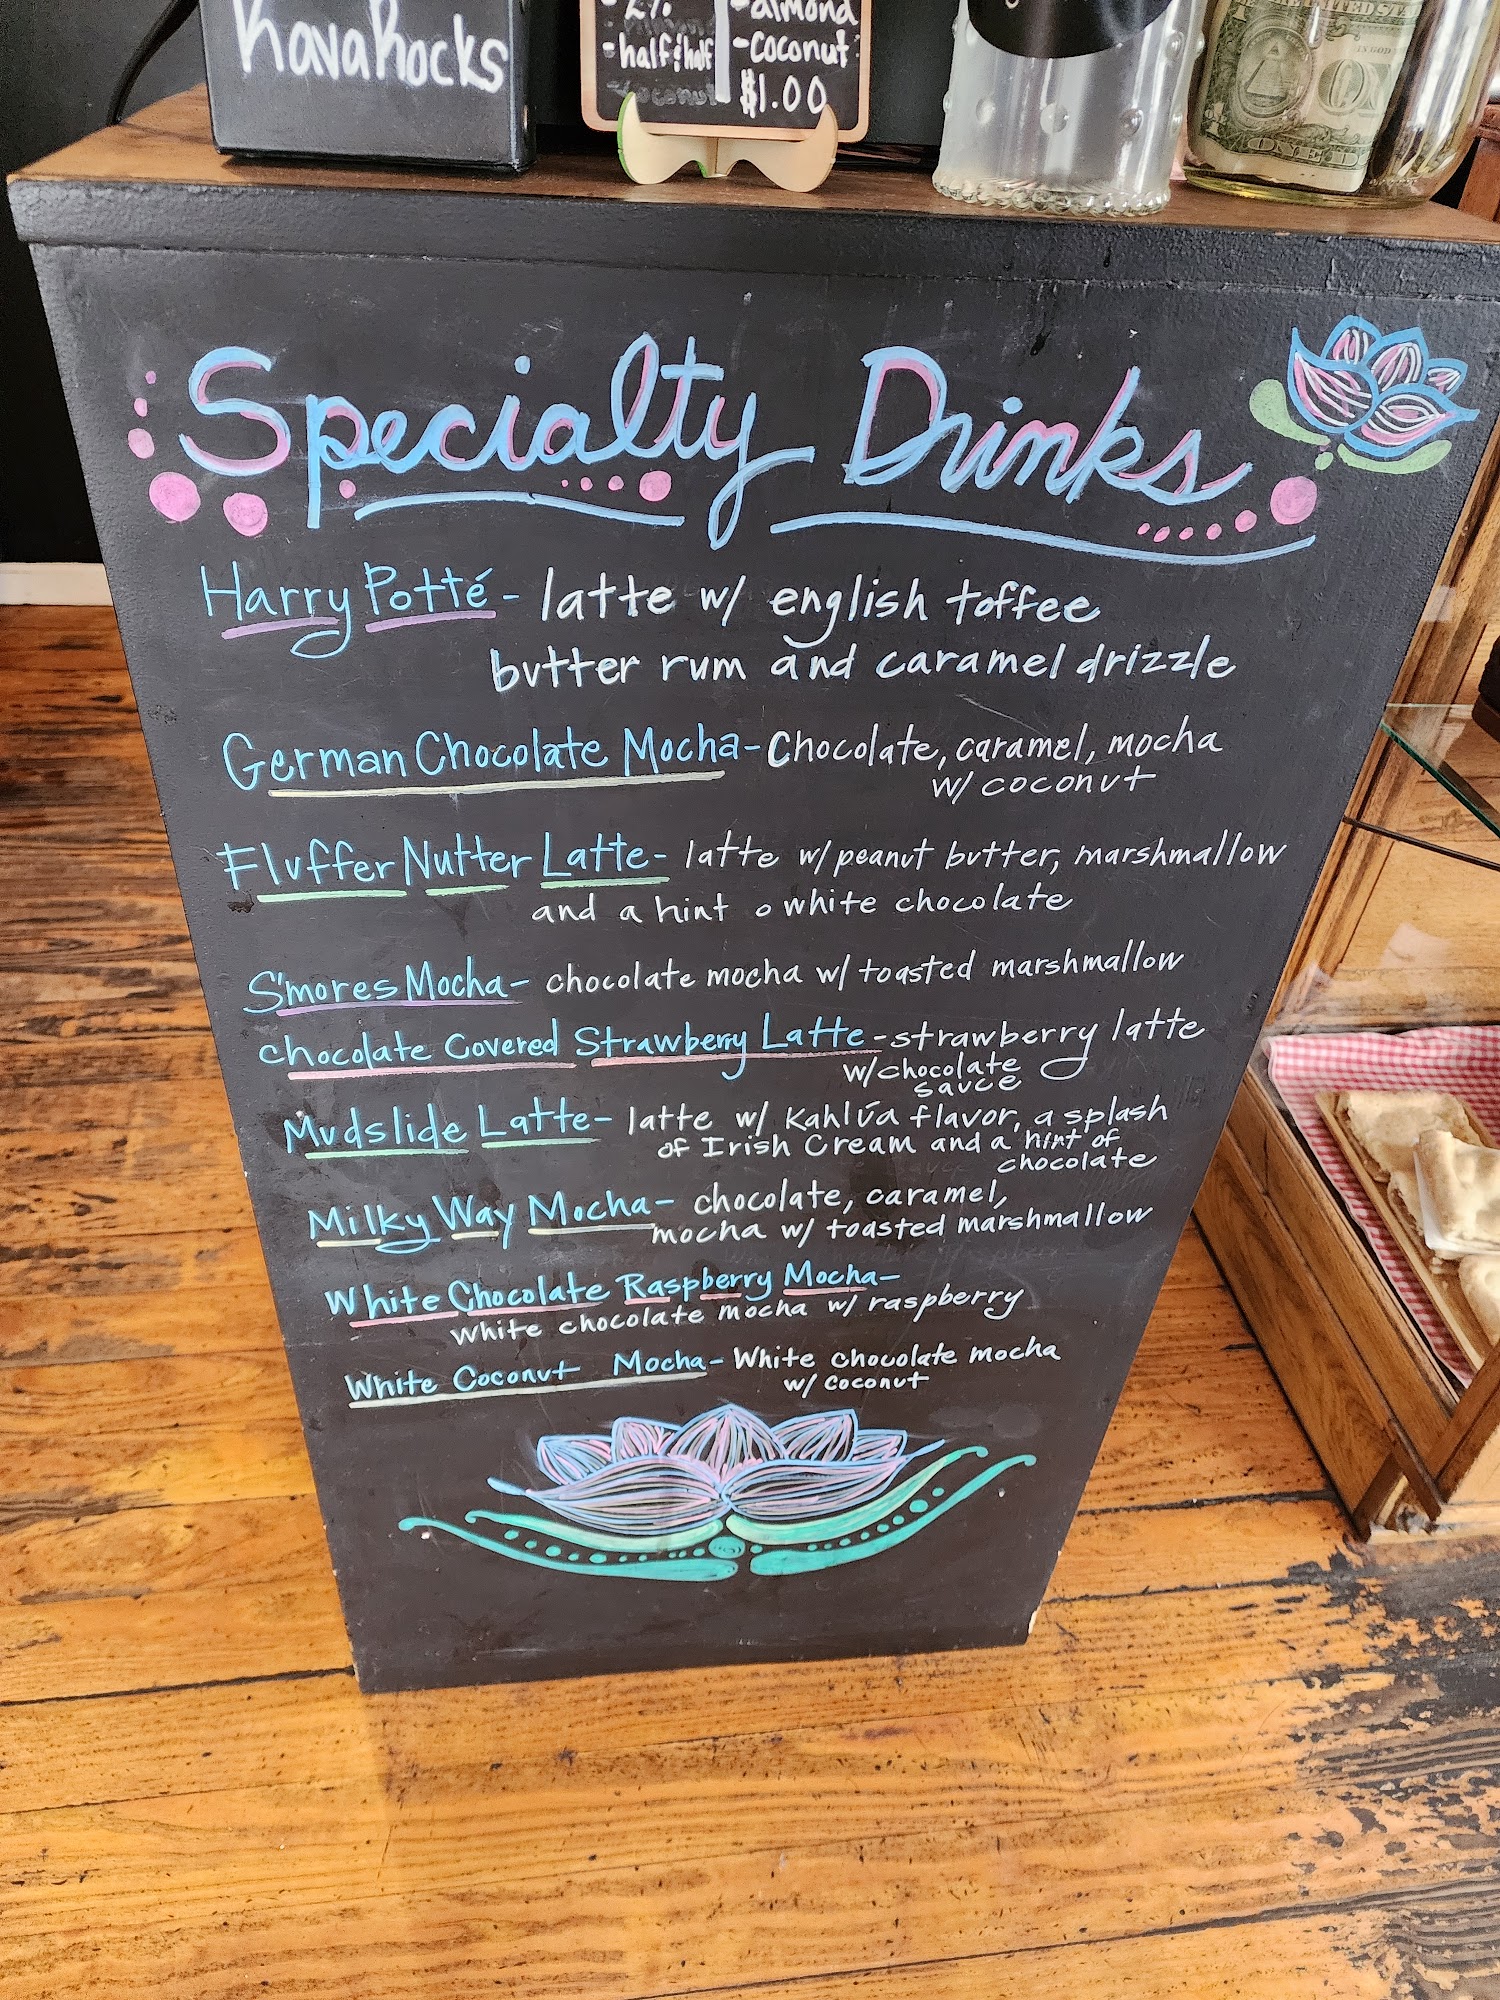 KavaRocks
- 2%
- half & half
coconut
- almond
- coconut
$1.00
THE UNITED STATES
IN GOD
ONE
Specialty Drinks
Harry Potté - latte w/ english toffee
butter rum and caramel drizzle
German Chocolate Mocha - Chocolate, caramel, mocha
w/ coconut
Fluffer Nutter Latte - latte w/ peanut butter, marshmallow
and a hint o white chocolate
S'mores Mocha - chocolate mocha w/ toasted marshmallow
Chocolate Covered Strawberry Latte - strawberry latte
w/ chocolate
sauce
Mudslide Latte - latte w/ Kahlúa flavor, a splash
of Irish Cream and a hint of
chocolate
Milky Way Mocha - chocolate, caramel,
mocha w/ toasted marshmallow
White Chocolate Raspberry Mocha -
white chocolate mocha w/ raspberry
White Coconut Mocha - White chocolate mocha
w/ coconut